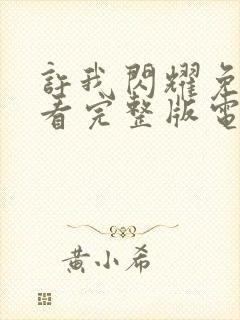 許我閃耀免
看完整版電
黃小希